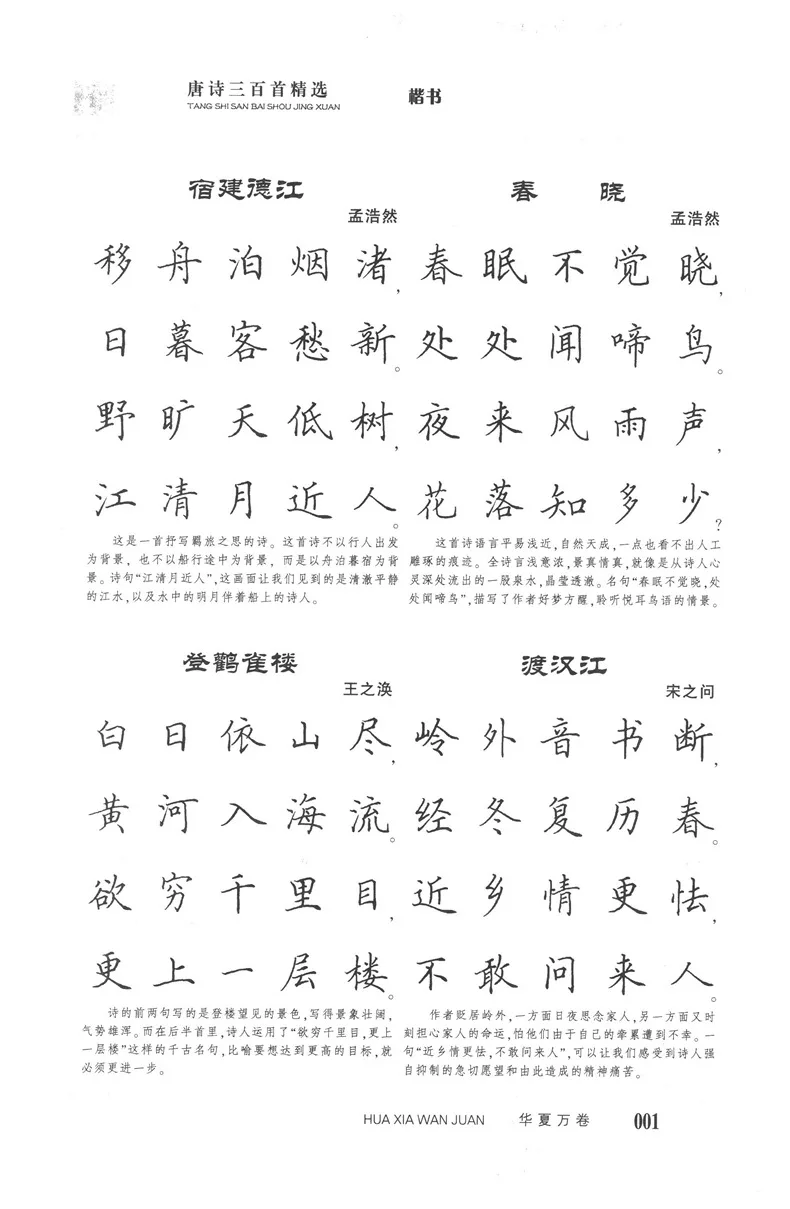 唐诗三百首精选
TANG SHI SAN BAI SHOU JING XUAN
楷书
宿建德江
孟浩然
移舟泊烟渚，
日暮客愁新。
野旷天低树，
江清月近人。
这是一首抒写羁旅之思的诗。这首诗不以行人出发
为背景，也不以船行途中为背景，而是以舟泊暮宿为背
景。诗句“江清月近人”，这画面让我们见到的是清澈平静
的江水，以及水中的明月伴着船上的诗人。
春晓
孟浩然
春眠不觉晓，
处处闻啼鸟。
夜来风雨声，
花落知多少？
这首诗语言平易浅近，自然天成，一点也看不出人工
雕琢的痕迹。全诗言浅意浓，景真情真，就像是从诗人心
灵深处流出的一股泉水，晶莹透澈。名句“春眠不觉晓，处
处闻啼鸟”，描写了作者好梦方醒，聆听悦耳鸟语的情景。
登鹳雀楼
王之涣
白日依山尽，
黄河入海流。
欲穷千里目，
更上一层楼。
诗的前两句写的是登楼望见的景色，写得景象壮阔，
气势雄浑。而在后半首里，诗人运用了“欲穷千里目，更上
一层楼”这样的千古名句，比喻要想达到更高的目标，就
必须更进一步。
渡汉江
宋之问
岭外音书断，
经冬复历春。
近乡情更怯，
不敢问来人。
作者贬居岭外，一方面日夜思念家人，另一方面又时
刻担心家人的命运，怕他们由于自己的牵累遭到不幸。一
句“近乡情更怯，不敢问来人”，可以让我们感受到诗人强
自抑制的急切愿望和由此造成的精神痛苦。
HUA XIA WAN JUAN 华夏万卷 001